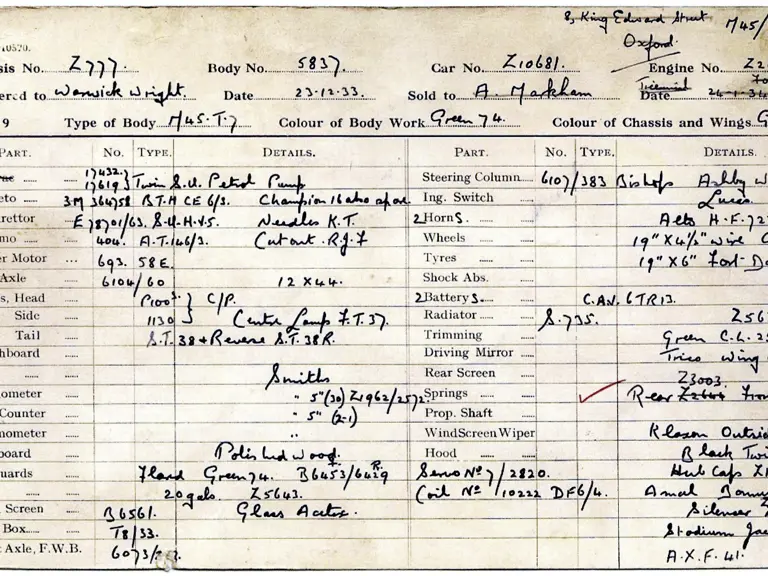 8, King Edward Street M45/
10520. Oxford.
sis No. Z777. Body No. 5837. Car No. Z10681. Engine No. Z2
ered to Warwick Wright. Date 23.12.33. Sold to A. Markham Date 24.1.34
9 Type of Body M45.T.7 Colour of Body Work Green 74. Colour of Chassis and Wings G
PART. No. TYPE. DETAILS. PART. No. TYPE. DETAILS.
17432. Steering Column 6107/383 Bishops Ashby W
17619 Twin S.U. Petrol Pump
eto 3M 364758 B.T.H CE 6/3. Champion 16 also spare Ing. Switch Lucas
urettor E78701/63. S.U.H.V.5. Needles K.T. 2 Horns Alto H.F.72
mo 404. A.T.146/3. Cutout R.J.F Wheels 19" X 4½" wire
er Motor 693. 58E. Tyres 19" X 6" Fort D
Axle 6104/60 12 X 44. Shock Abs.
s, Head P100 C/P. 2 Batterys C.A.V. 6TR13.
Side 1130 Centre Lamp F.T.37. Radiator S.735. Z56
Tail S.T.38 + Reverse S.T.38R. Trimming Green C.L.2
hboard Driving Mirror Trico Wing
Smiths Rear Screen Z3003.
ometer " 5" (30) Z1962/2572. Springs Rear Z2644 Fron
Counter " 5" (2-1) Prop. Shaft
mometer " WindScreen Wiper Klaxon Outsid
board Polished wood. Hood Black Twi
uards Flared Green 74. B6453/6429 Servo No 7/2820. Hub Caps Z
20 gals. Z5643. Coil No 10222 DF6/4. Amal
Screen B6561. Glass Acetex. Silencer
Box T8/33. Stadium Ja
Axle, F.W.B. 6073/ A.X.F. 41.